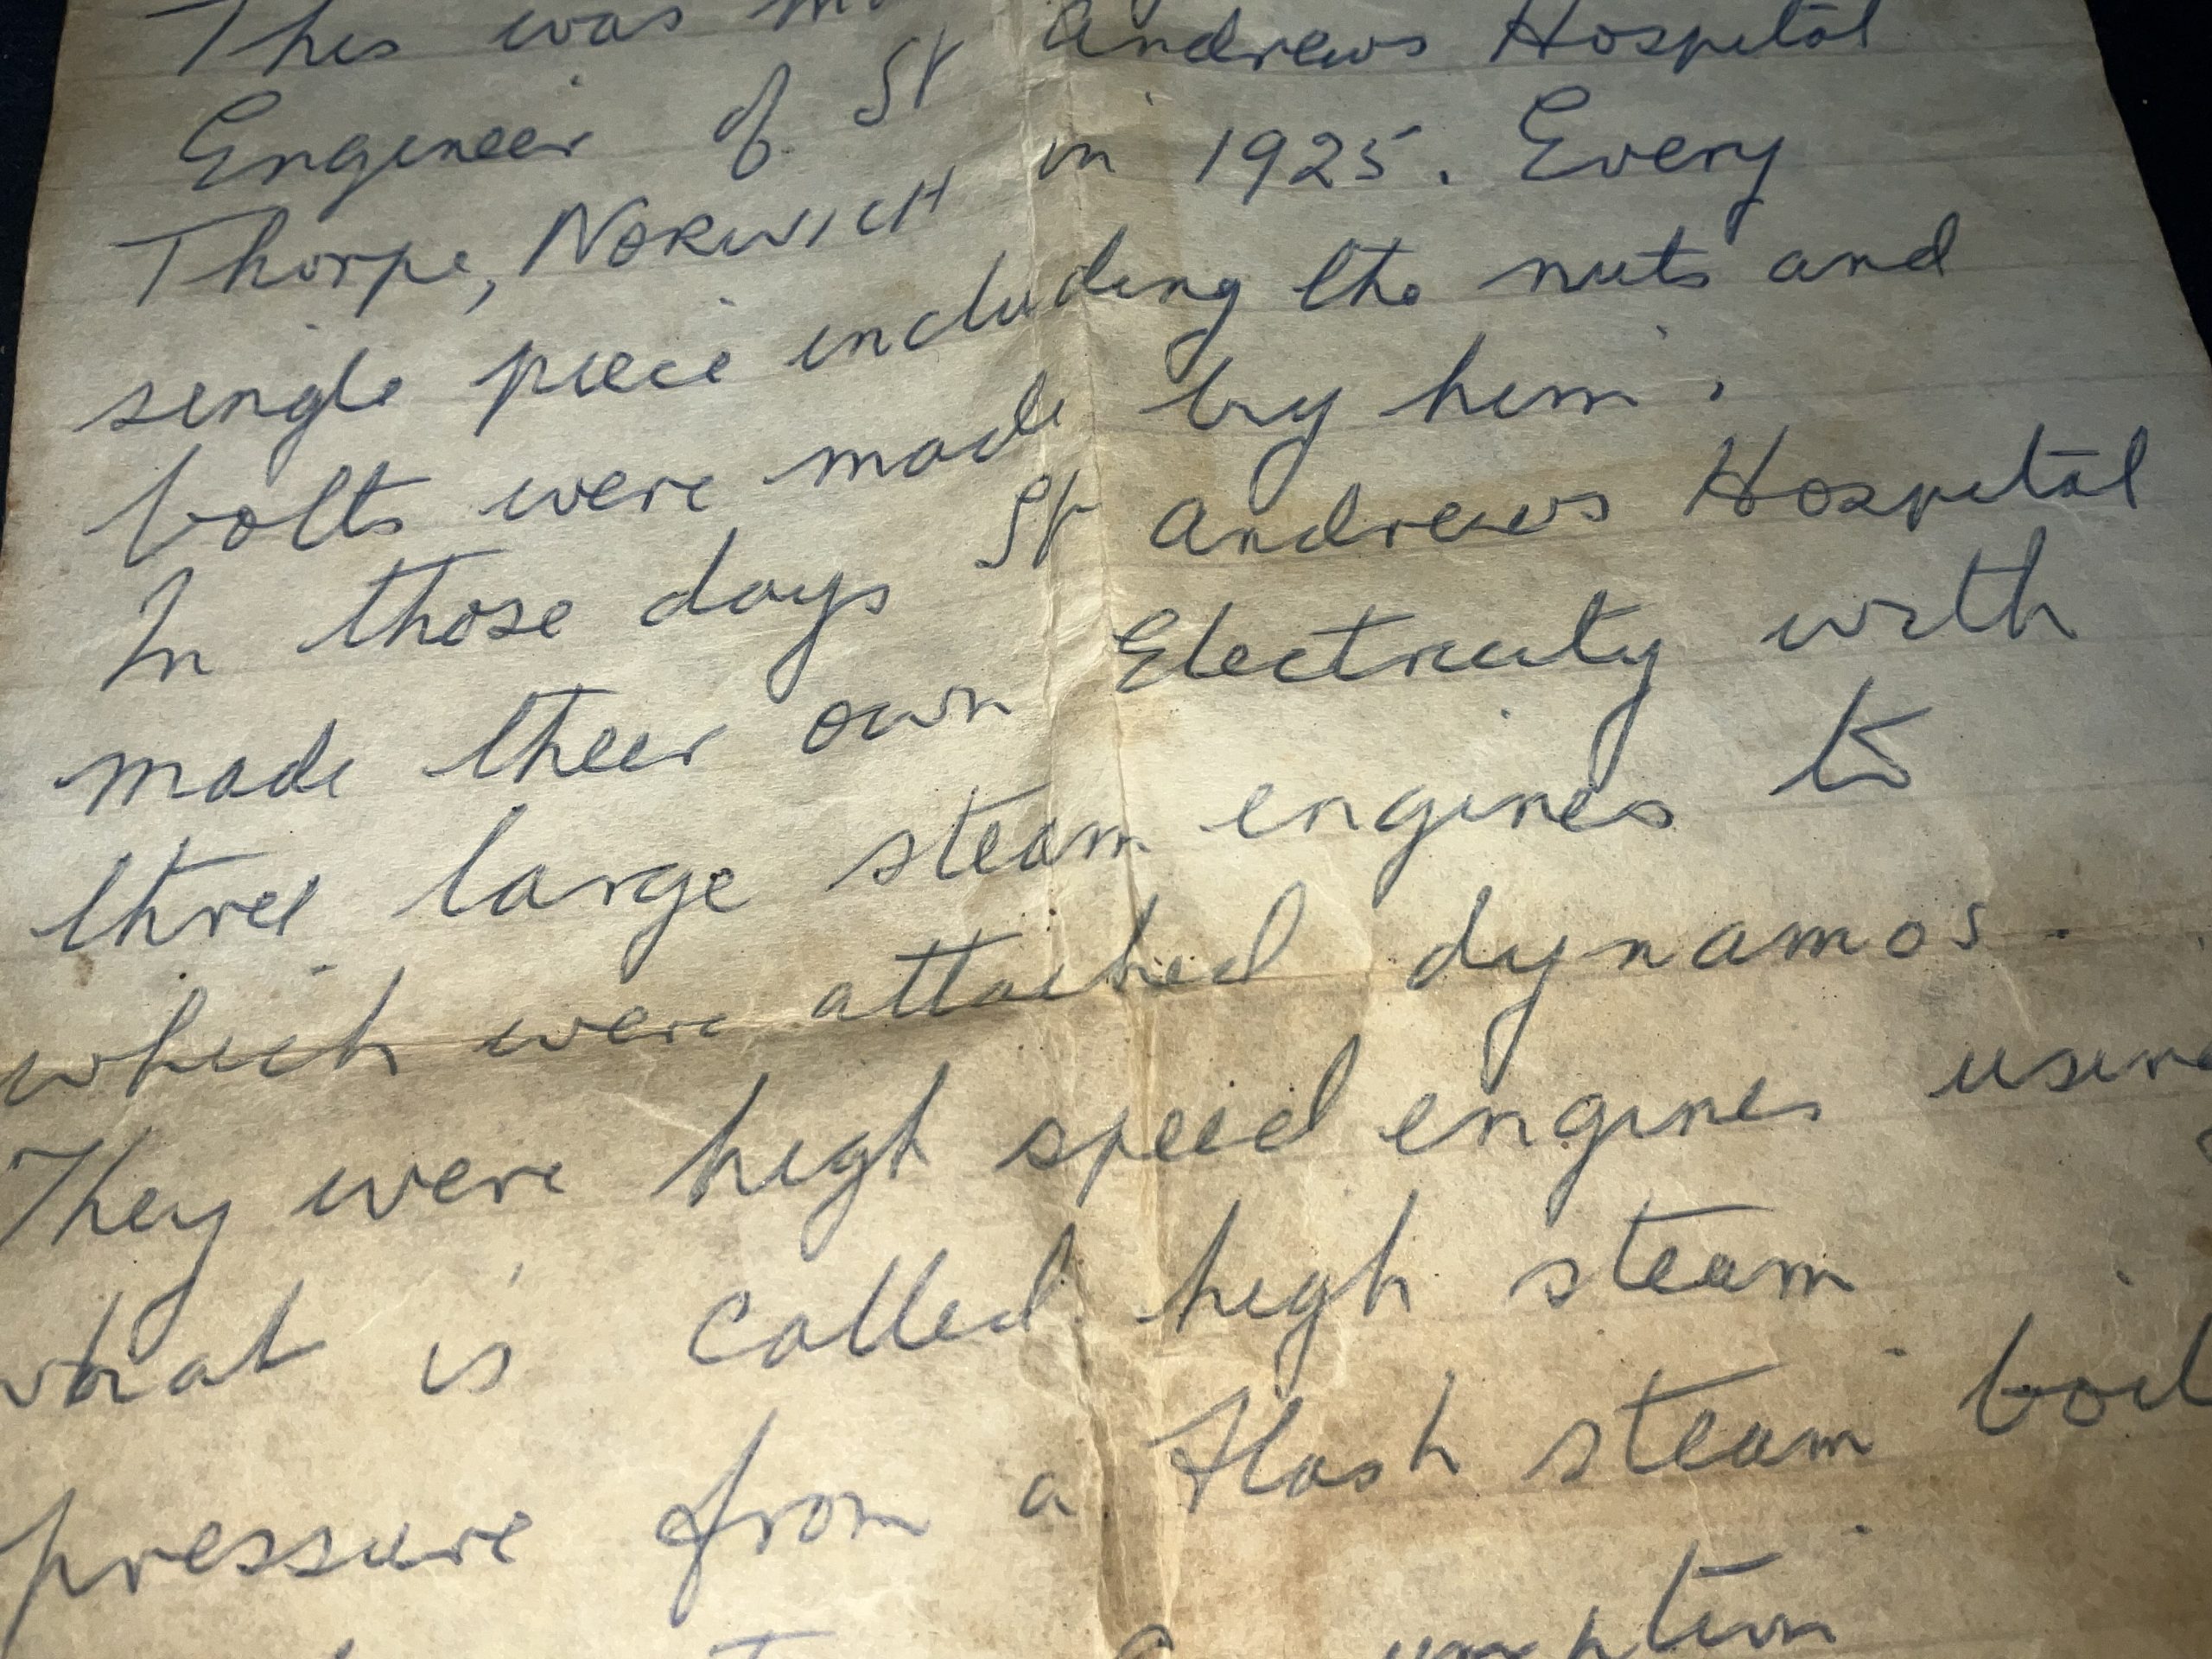 This was
Engineer of St Andrews Hospital
Thorpe, NORWICH in 1925. Every
single piece including the nuts and
bolts were made by him.
In those days St Andrews Hospital
made their own Electricity with
three large steam engines to
which were attached dynamos.
They were high speed engines using
what is called high steam
pressure from a flash steam boil